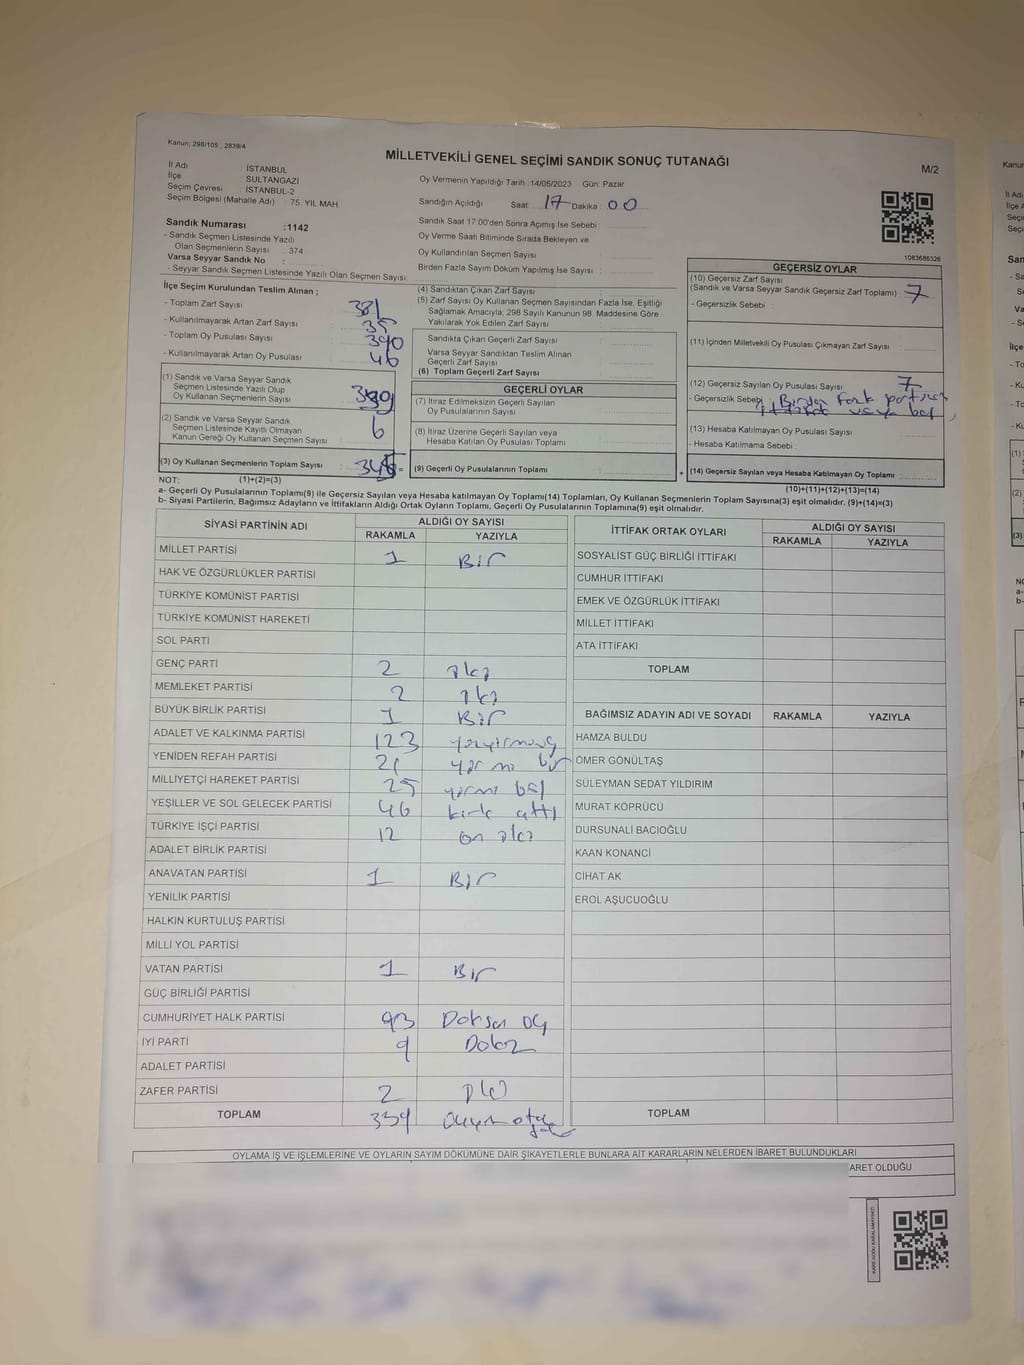 Kanun; 298/105 , 2839/4
MİLLETVEKİLİ GENEL SEÇİMİ SANDIK SONUÇ TUTANAĞI
M/2
İl Adı : İSTANBUL
İlçe : SULTANGAZİ
Seçim Çevresi : İSTANBUL-2
Seçim Bölgesi (Mahalle Adı) : 75. YIL MAH.
Oy Vermenin Yapıldığı Tarih : 14/05/2023 Gün: Pazar
Sandığın Açıldığı Saat: 17 Dakika: 00
Sandık Saat 17:00'den Sonra Açımış İse Sebebi :
Oy Verme Saati Bitiminde Sırada Bekleyen ve
Oy Kullandırılan Seçmen Sayısı :
Birden Fazla Sayım Döküm Yapılmış İse Sayısı :
1083686326
Sandık Numarası :1142
- Sandık Seçmen Listesinde Yazılı
Olan Seçmenlerin Sayısı : 374
Varsa Seyyar Sandık No :
- Seyyar Sandık Seçmen Listesinde Yazılı Olan Seçmen Sayısı:
İlçe Seçim Kurulundan Teslim Alınan ;
- Toplam Zarf Sayısı 381
- Kullanılmayarak Artan Zarf Sayısı 35
- Toplam Oy Pusulası Sayısı 390
- Kullanılmayarak Artan Oy Pusulası 46
(1) Sandık ve Varsa Seyyar Sandık
Seçmen Listesinde Yazılı Olup
Oy Kullanan Seçmenlerin Sayısı
(2) Sandık ve Varsa Seyyar Sandık
Seçmen Listesinde Kayıtlı Olmayan
Kanun Gereği Oy Kullanan Seçmen Sayısı : 6
(3) Oy Kullanan Seçmenlerin Toplam Sayısı =
(4) Sandıktan Çıkan Zarf Sayısı :
(5) Zarf Sayısı Oy Kullanan Seçmen Sayısından Fazla İse, Eşitliği
Sağlamak Amacıyla; 298 Sayılı Kanunun 98. Maddesine Göre
Yakılarak Yok Edilen Zarf Sayısı :
Sandıkta Çıkan Geçerli Zarf Sayısı :
Varsa Seyyar Sandıktan Teslim Alınan
Geçerli Zarf Sayısı :
(6) Toplam Geçerli Zarf Sayısı :
GEÇERLİ OYLAR
(7) İtiraz Edilmeksizin Geçerli Sayılan
Oy Pusulalarının Sayısı :
(8) İtiraz Üzerine Geçerli Sayılan veya
Hesaba Katılan Oy Pusulası Toplamı :
(9) Geçerli Oy Pusulalarının Toplamı : +
GEÇERSİZ OYLAR
(10) Geçersiz Zarf Sayısı
(Sandık ve Varsa Seyyar Sandık Geçersiz Zarf Toplamı) : 7
- Geçersizlik Sebebi :
(11) İçinden Milletvekili Oy Pusulası Çıkmayan Zarf Sayısı :
(12) Geçersiz Sayılan Oy Pusulası Sayısı : 7
- Geçersizlik Sebebi : Birden Fazla
(13) Hesaba Katılmayan Oy Pusulası Sayısı :
- Hesaba Katılmama Sebebi :
(14) Geçersiz Sayılan veya Hesaba Katılmayan Oy Toplamı :
NOT: (1)+(2)=(3)
(10)+(11)+(12)+(13)=(14)
a- Geçerli Oy Pusulalarının Toplamı(9) ile Geçersiz Sayılan veya Hesaba katılmayan Oy Toplamı(14) Toplamları, Oy Kullanan Seçmenlerin Toplam Sayısına(3) eşit olmalıdır. (9)+(14)=(3)
b- Siyasi Partilerin, Bağımsız Adayların ve İttifakların Aldığı Ortak Oyların Toplamı, Geçerli Oy Pusulalarının Toplamına(9) eşit olmalıdır.
SİYASİ PARTİNİN ADI ALDIĞI OY SAYISI
RAKAMLA YAZIYLA
MİLLET PARTİSİ 1 Bir
HAK VE ÖZGÜRLÜKLER PARTİSİ
TÜRKİYE KOMÜNİST PARTİSİ
TÜRKİYE KOMÜNİST HAREKETİ
SOL PARTİ
GENÇ PARTİ 2 iki
MEMLEKET PARTİSİ 2 iki
BÜYÜK BİRLİK PARTİSİ 1 Bir
ADALET VE KALKINMA PARTİSİ 123 yüzyirmiüç
YENİDEN REFAH PARTİSİ 21 yirmi bir
MİLLİYETÇİ HAREKET PARTİSİ 25 yirmi beş
YEŞİLLER VE SOL GELECEK PARTİSİ 46 kırk altı
TÜRKİYE İŞÇİ PARTİSİ 12 on iki
ADALET BİRLİK PARTİSİ
ANAVATAN PARTİSİ 1 Bir
YENİLİK PARTİSİ
HALKIN KURTULUŞ PARTİSİ
MİLLİ YOL PARTİSİ
VATAN PARTİSİ 1 Bir
GÜÇ BİRLİĞİ PARTİSİ
CUMHURİYET HALK PARTİSİ 93 Doksan üç
İYİ PARTİ 9 Dokuz
ADALET PARTİSİ
ZAFER PARTİSİ 2 iki
TOPLAM 339
İTTİFAK ORTAK OYLARI ALDIĞI OY SAYISI
RAKAMLA YAZIYLA
SOSYALİST GÜÇ BİRLİĞİ İTTİFAKI
CUMHUR İTTİFAKI
EMEK VE ÖZGÜRLÜK İTTİFAKI
MİLLET İTTİFAKI
ATA İTTİFAKI
TOPLAM
BAĞIMSIZ ADAYIN ADI VE SOYADI RAKAMLA YAZIYLA
HAMZA BULDU
ÖMER GÖNÜLTAŞ
SÜLEYMAN SEDAT YILDIRIM
MURAT KÖPRÜCÜ
DURSUNALİ BACIOĞLU
KAAN KONANCİ
CİHAT AK
EROL AŞUCUOĞLU
TOPLAM
OYLAMA İŞ VE İŞLEMLERİNE VE OYLARIN SAYIM DÖKÜMÜNE DAİR ŞİKAYETLERLE BUNLARA AİT KARARLARIN NELERDEN İBARET BULUNDUKLARI
ARET OLDUĞU
KARE KODU KARALAMAYINIZ!